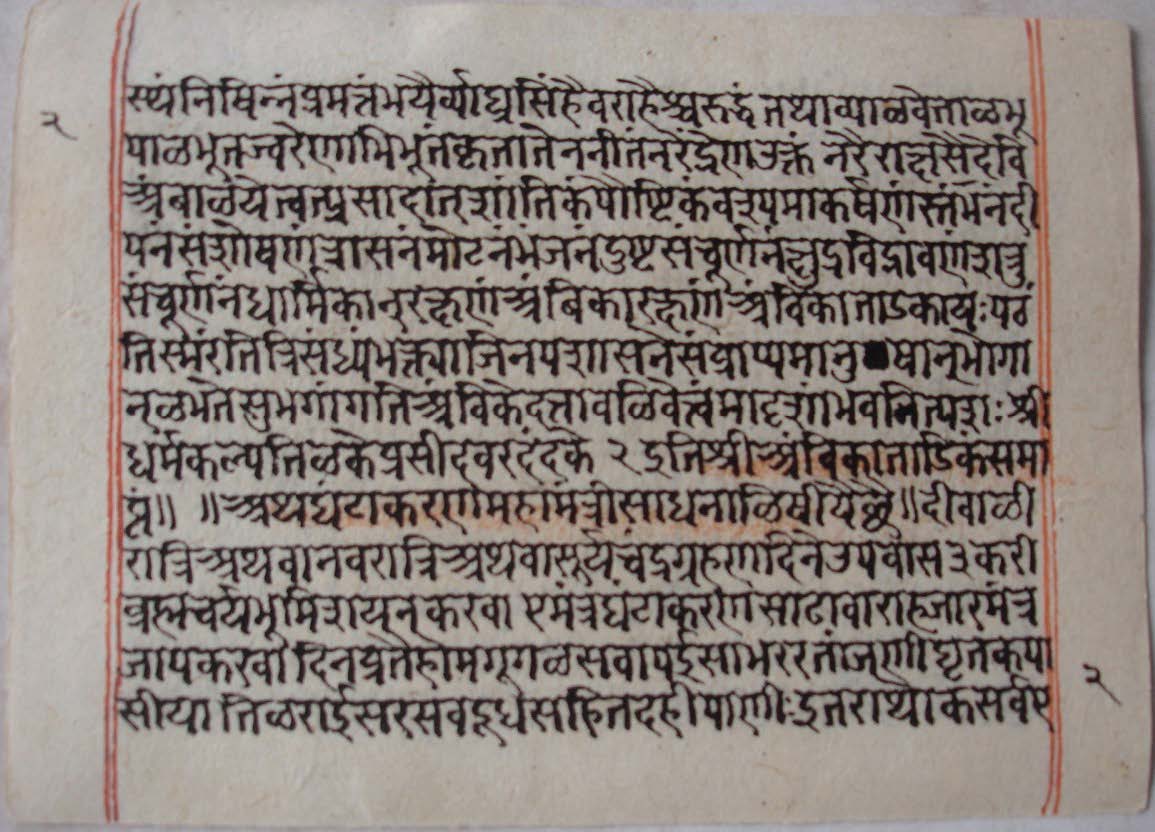 २
स्थंनिषिन्नंप्रमत्तंभयैर्व्याघ्रसिंहैवराहैश्चरुद्धं तथाव्याळवेताळभू
पाळभूतज्वरेणाभिभूतंकृतांतेननीतंनरेंद्रेणउक्तं नरैराक्षसैर्देवि
अंबाळंयेत्वत्प्रसादात्शांतिकंपौष्टिकंवश्यमाकर्षणंस्तंभनंदी
पनंसंशोषणंत्रासनंमोटनंभंजनंदुष्टसंचूर्णनंक्षुद्रविद्रावणंशत्रु
संचूर्णनंधार्मिकानरक्षणंअंबिकारक्षणं अंबिकाताडकायुः पठं
तिस्मरंतित्रिसंध्यंभक्त्याजिनपशासनेसंप्राप्यमानु षान्भोगा
न्ळभतेसुभगांगतिंअंबिकेदत्तावळिवेत्वंमादृशांभवनित्यशः श्री
धर्मकल्पतिळकेप्रसीदवरदंदके २ इतिश्रीअंबिकाताडिकंसमा
प्तं॥ ॥अथघंटाकरणमहामंत्रीसाधनाळिषीयैछै॥दीवाळी
रात्रिअथवानवरात्रिअथवासूर्यचंद्रग्रहणदिनेउपवास३करी
ब्रह्मचर्यभुमिशयनकरवा एमंत्रघंटाकरणसाढाबाराहजारमंत्र
जापकरवो दिनप्रतेहोमगुगळसवापईसाभररतांजणीघृतकपा
सीया तिळराईसरसवदूधसहितदहीपाणीःइतराथोकसर्वए
२